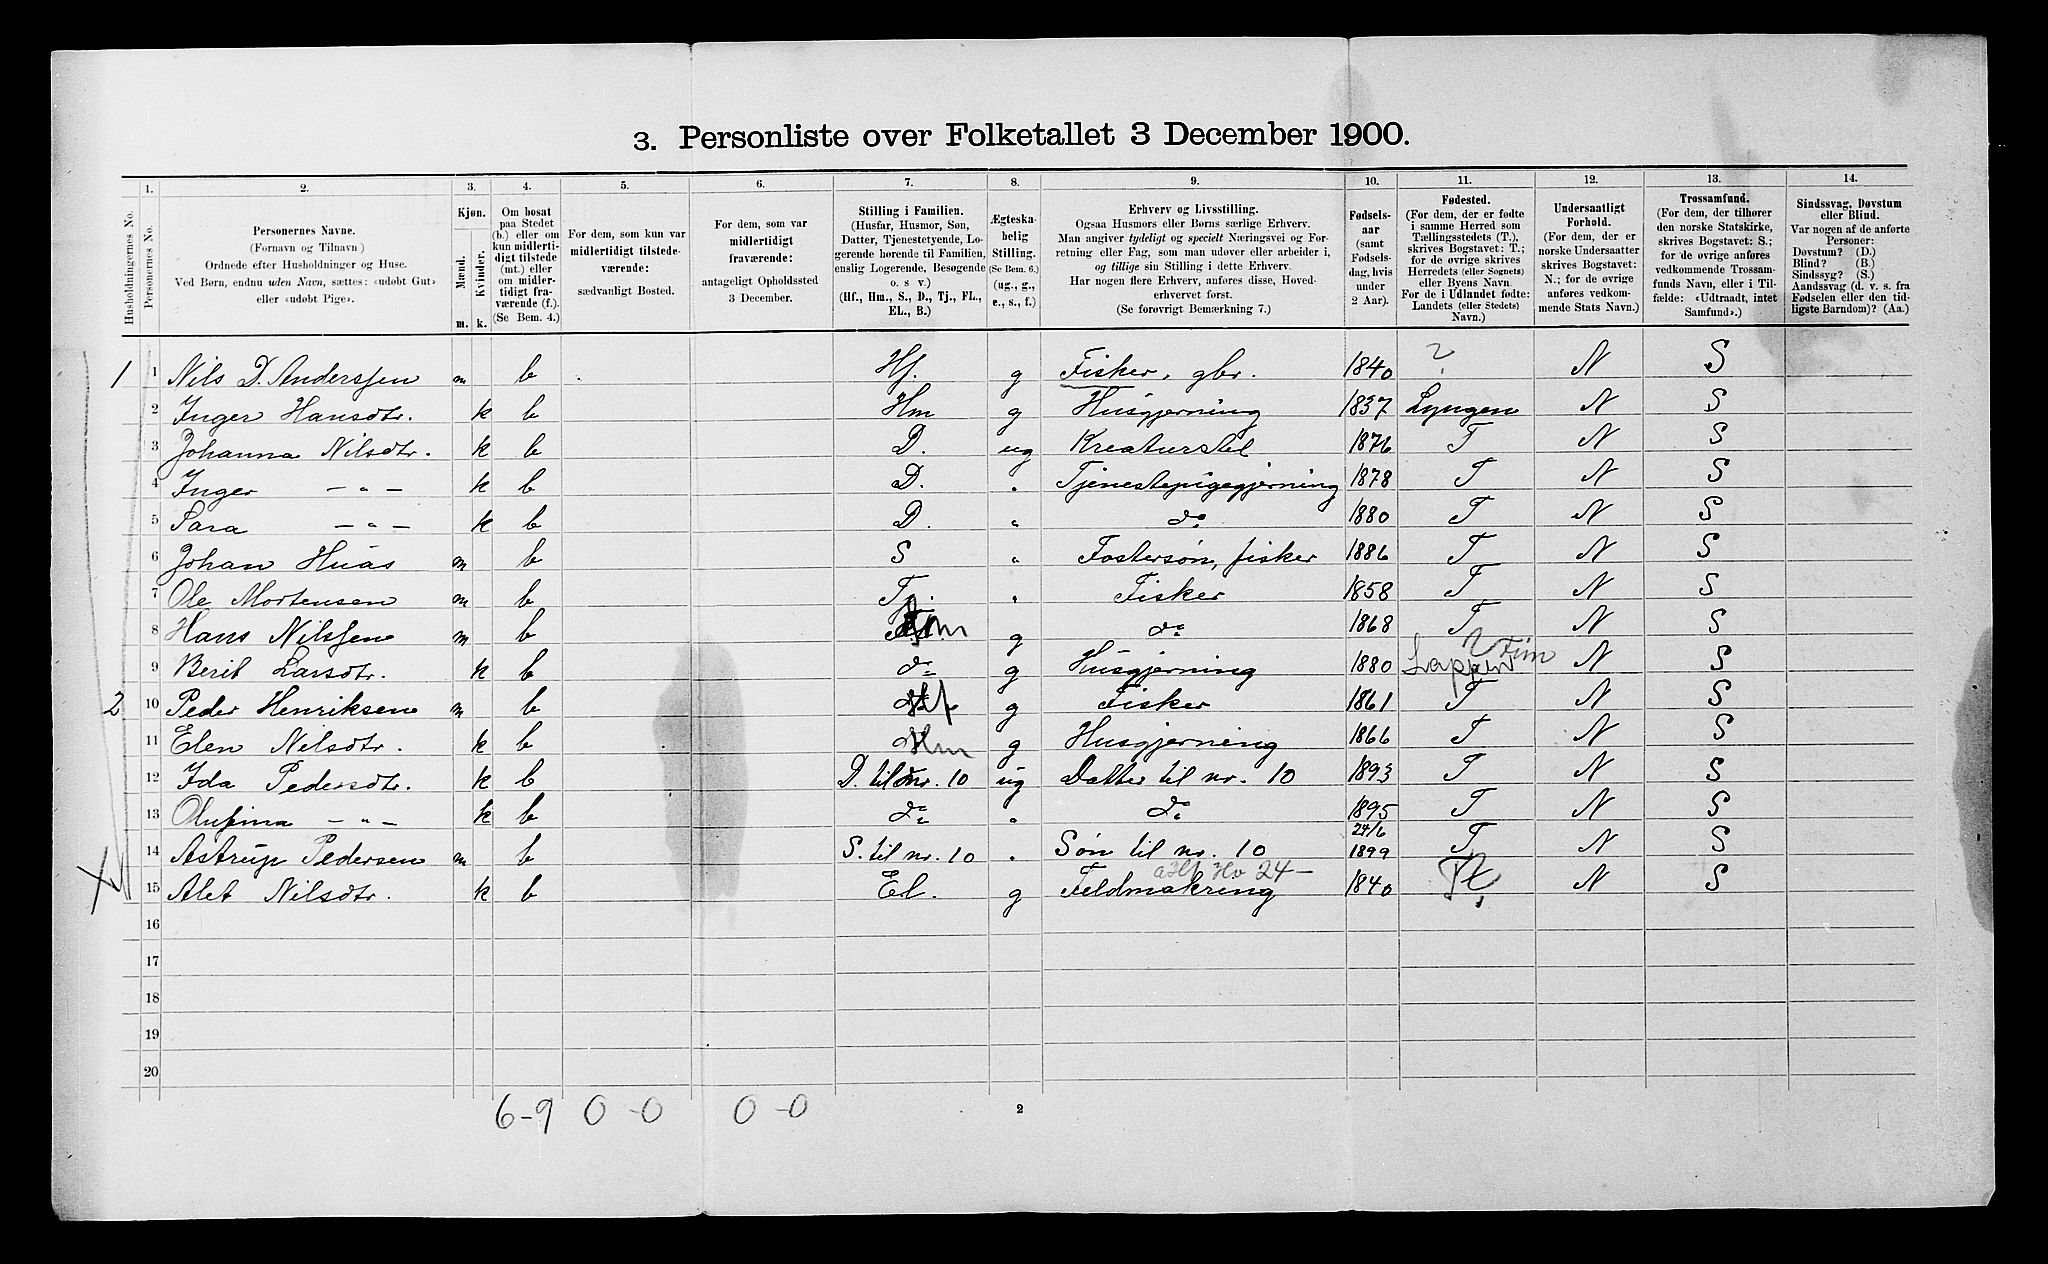 3. Personliste over Folketallet 3 December 1900.
1. 2. 3. 4. 5. 6. 7. 8. 9. 10. 11. 12. 13. 14.
Husholdningernes No.
Personernes No.
Personernes Navne.
(Fornavn og Tilnavn)
Ordnede efter Husholdninger og Huse.
Ved Børn, endnu uden Navn, sættes: «udøbt Gut»
eller «udøbt Pige».
Kjøn.
Mænd.
Kvinder.
m. k.
Om bosat
paa Stedet
(b.) eller om
kun midlerti-
digt tilstede
(mt.) eller
om midler-
tidigt fra-
værende (f.).
(Se Bem. 4.)
For dem, som kun var
midlertidigt tilstede-
værende:
sædvanligt Bosted.
For dem, som var
midlertidigt
fraværende:
antageligt Opholdssted
3 December.
Stilling i Familien.
(Husfar, Husmor, Søn,
Datter, Tjenestetyende, Lo-
gerende hørende til Familien,
enslig Logerende, Besøgende
o. s v.)
(Hf., Hm., S., D., Tj., FL.,
EL., B.)
Ægteska-
belig
Stilling.
(Se Bem. 6.)
(ug., g.,
e., s., f.)
Erhverv og Livsstilling.
Ogsaa Husmors eller Børns særlige Erhverv.
Man angiver tydeligt og specielt Næringsvei og For-
retning eller Fag, som man udøver eller arbeider i,
og tillige sin Stilling i dette Erhverv.
Har nogen flere Erhverv, anføres disse, Hoved-
erhvervet først.
(Se forøvrigt Bemærkning 7.)
Fødsels-
aar
(samt
Fødsels-
dag, hvis
under
2 Aar).
Fødested.
(For dem, der er fødte
i samme Herred som
Tællingsstedets (T.),
skrives Bogstavet: T.;
for de øvrige skrives
Herredets (eller Sognets)
eller Byens Navn.
For de i Udlandet fødte:
Landets (eller Stedets)
Navn.)
Undersaatligt
Forhold.
(For dem, der er
norske Undersaatter
skrives Bogstavet:
N.; for de øvrige
anføres vedkom-
mende Stats Navn.)
Trossamfund.
(For dem, der tilhører
den norske Statskirke,
skrives Bogstavet: S.;
for de øvrige anføres
vedkommende Trossam-
funds Navn, eller i Til-
fælde: «Udtraadt, intet
Samfund».)
Sindssvag, Døvstum
eller Blind.
Var nogen af de anførte
Personer:
Døvstum? (D.)
Blind? (B.)
Sindssyg? (S.)
Aandssvag (d. v. s. fra
Fødselen eller den tid-
ligste Barndom)? (Aa.)
1 1 Nils D. Anderssen m b Hf. g Fisker, gbr. 1840 ? N S
2 Inger Hansdtr. k b Hm g Husgjerning 1837 Lyngen N S
3 Johanna Nilsdtr. k b D. ug Kreaturstel 1876 T N S
4 Inger — " — k b D. " Tjenestepigegjerning 1878 T N S
5 Sara — " — k b D. " do 1880 T N S
6 Johan Huas m b S " Fostersøn, fisker 1886 T N S
7 Ole Mortensen m b Tj. " Fisker 1858 T N S
8 Hans Nilssen m b g do 1868 T N S
9 Berit Larsdtr. k b do g Husgjerning 1880 Lappen ? Fin N S
2 10 Peder Henriksen m b Hf g Fisker 1861 T N S
11 Elen Nilsdtr. k b Hm g Husgjerning 1866 T N S
12 Ida Pedersdtr. k b D. til nr. 10 ug Datter til nr. 10 1893 T N S
13 Olufina — " — k b do " do 1895 T N S
14 Astrup Pedersen m b S. til nr. 10 " Søn til nr. 10 24/6 1899 T N S
15 Alet Nilsdtr. k b El. g Feldmakring 24 — 1840 N S
16
17
18
19
20
6-9 0-0 0-0
2